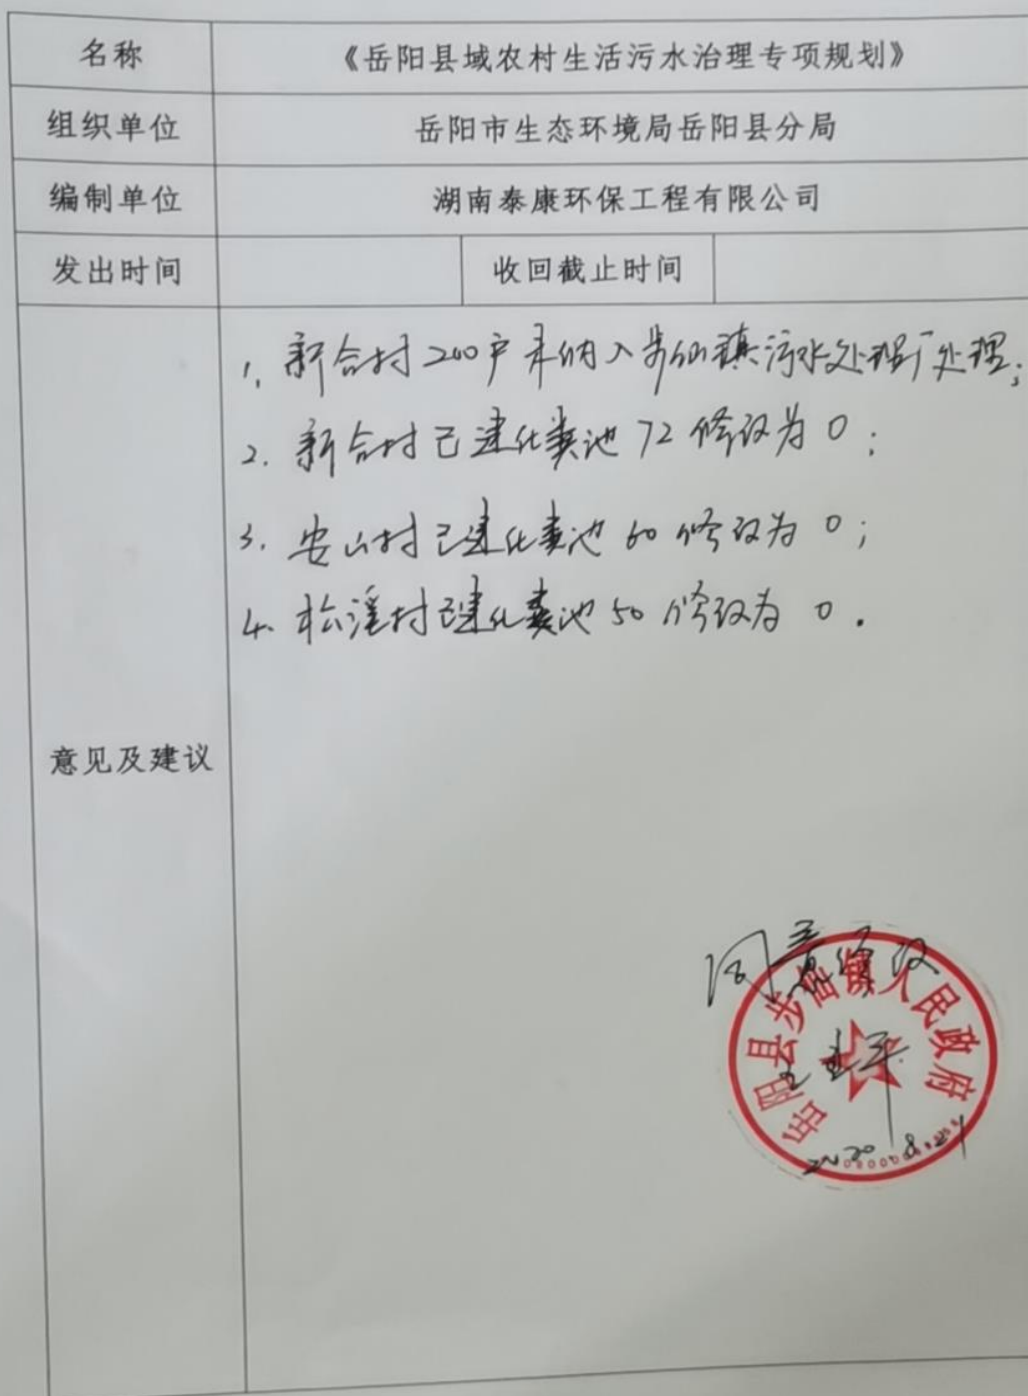 名称 《岳阳县域农村生活污水治理专项规划》
组织单位 岳阳市生态环境局岳阳县分局
编制单位 湖南泰康环保工程有限公司
发出时间 收回截止时间
意见及建议
1. 新合村200户未纳入步仙镇污水处理厂处理;
2. 新合村已建化粪池72修改为0;
3. 安山村已建化粪池60修改为0;
4. 松溪村已建化粪池50修改为0.
同意修改
岳阳县步仙镇人民政府
2020.8.21